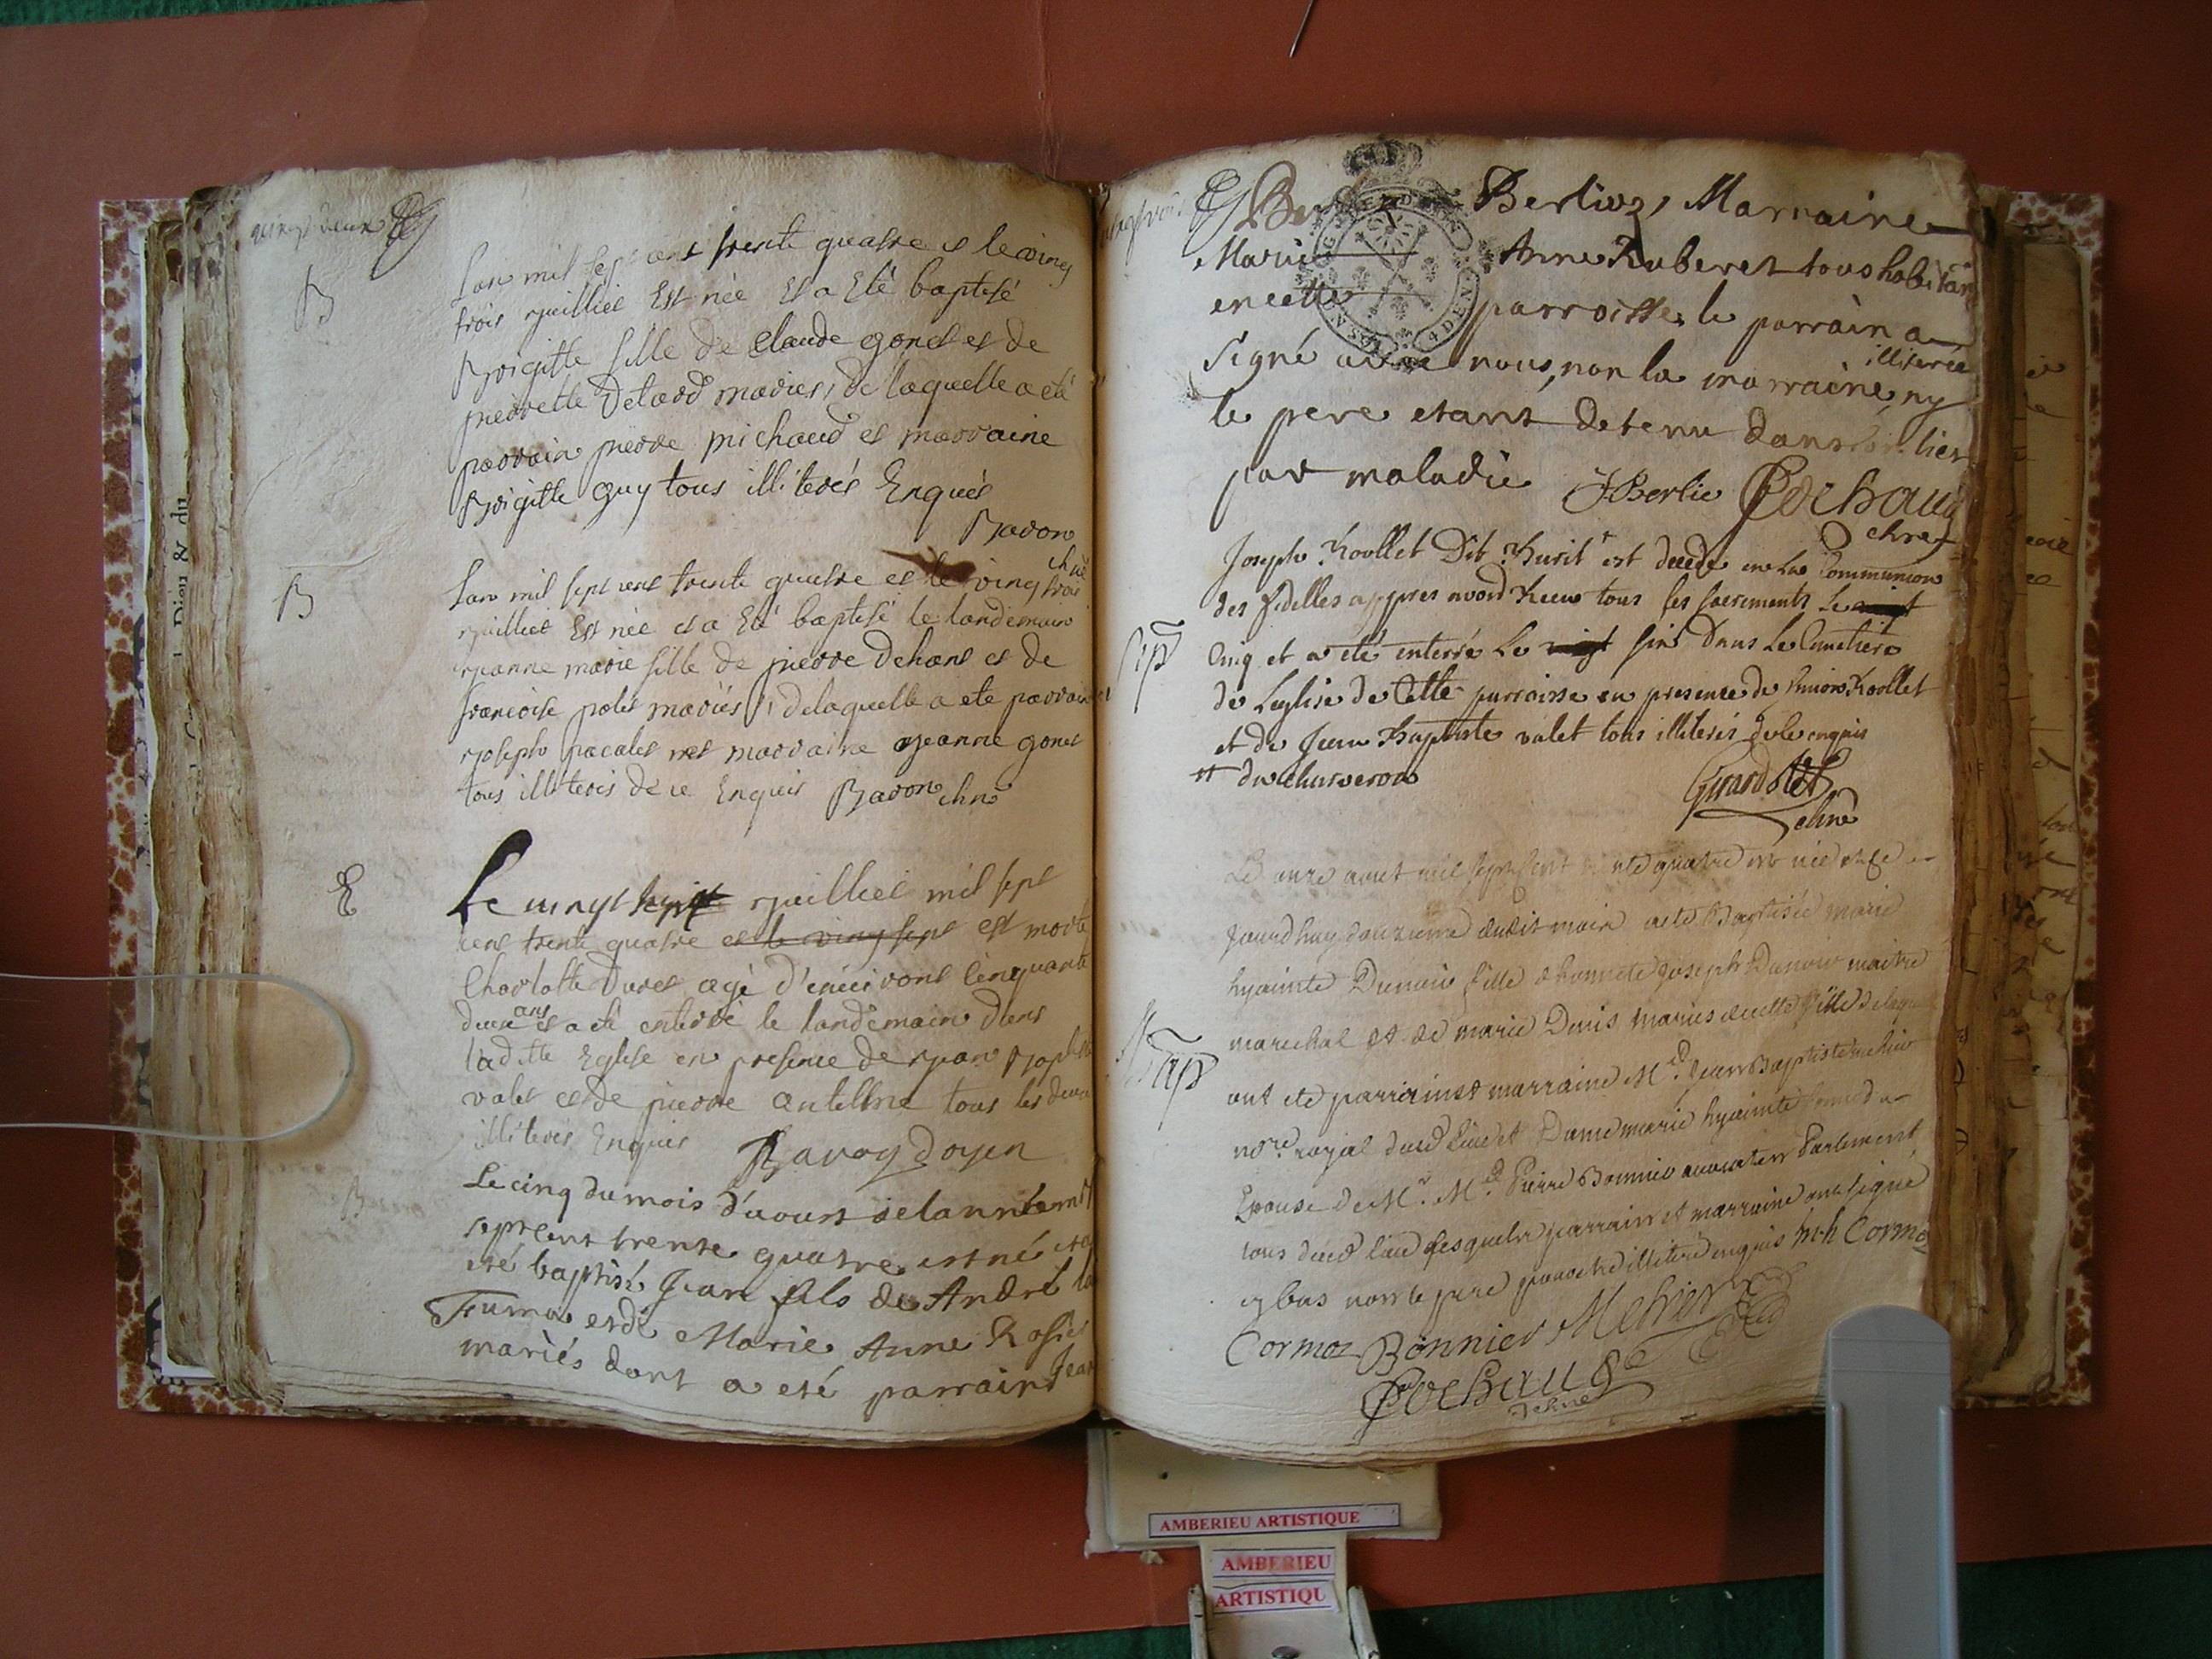 vingt deux
B
Lan mil sept cent trente quatre et le vingt
trois juilliet Est née Et a Eté baptisé
Brigitte fille de Claude gonet et de
pierrette Detard mariés, de laquelle a eté
parrain pierre michaud et marraine
Brigitte guy tous illiterés Enquis
Baron
chne
B
Lan mil sept cent trente quatre et le vingt trois
juilliet Est née et a Eté baptisé le landemain
jeanne marie fille de pierre Dehant et de
francoise polet mariés, delaquelle a ete parrain
joseph pacalet et marraine jeanne gonet
tous illiterés de ce Enquis Baron chne
E
Le vingt juilliet mil sept
cent trente quatre et le vingt sept est morte
Charlotte Duret agé d'environt cinquante
deux ans et a eté enterré le landemain dans
ladite Eglise en presence de jean baptiste
valet et de pierre antelme tous les deux
illiterés Enquis Savoy Doyen
Le cinq du mois d'aoust de lannee mil
sept cent trente quatre est né et a
eté baptisé Jean fils de André la
Fuma et de Marie Anne Rosier
mariés dont a eté parrain Jean
Berlioz, Marraine
Marie Anne Auberet tous habitans
en cette parroisse, le parrain a
signé avec nous, non la marraine illiterée ny
le pere etant detenu dans son lict
par maladie JBerlie Cochaud
chne
Joseph Rollet Dit est decede en La Communion
des fidelles appres avoird Receu tous ses sacrements Le
sep
Cinq et a eté enterré Le vingt six Dans Le Cimetiere
de Leglise de Cette parroisse en presence de Rollet
et de Jean Baptiste valet tous illiterés de le enquis
Girardet
chne
Le onze aout mil sept cent trente quatre est née et le
jourdhuy douzieme dudit mois a eté Baptisée marie
hyainte Dunoir fille dhonnete joseph Dunoir maitre
marechal et de marie Denis mariés de cette ville de laquelle
Bap
ont ete parrain et marraine Mr. Jean Baptiste mehier
nore. royal dud lieu et Dame marie hyainte Cormoz
Epouse de Mr. Me. Pierre Bonnier avocat en Parlement
tous dud lieu lesquels parrain et marraine ont signé
cy bas non le pere pour etre illitere enquis m h Cormoz
Cormoz Bonnier Mehier
Cochaud
chne
AMBERIEU ARTISTIQUE
AMBERIEU
ARTISTIQU